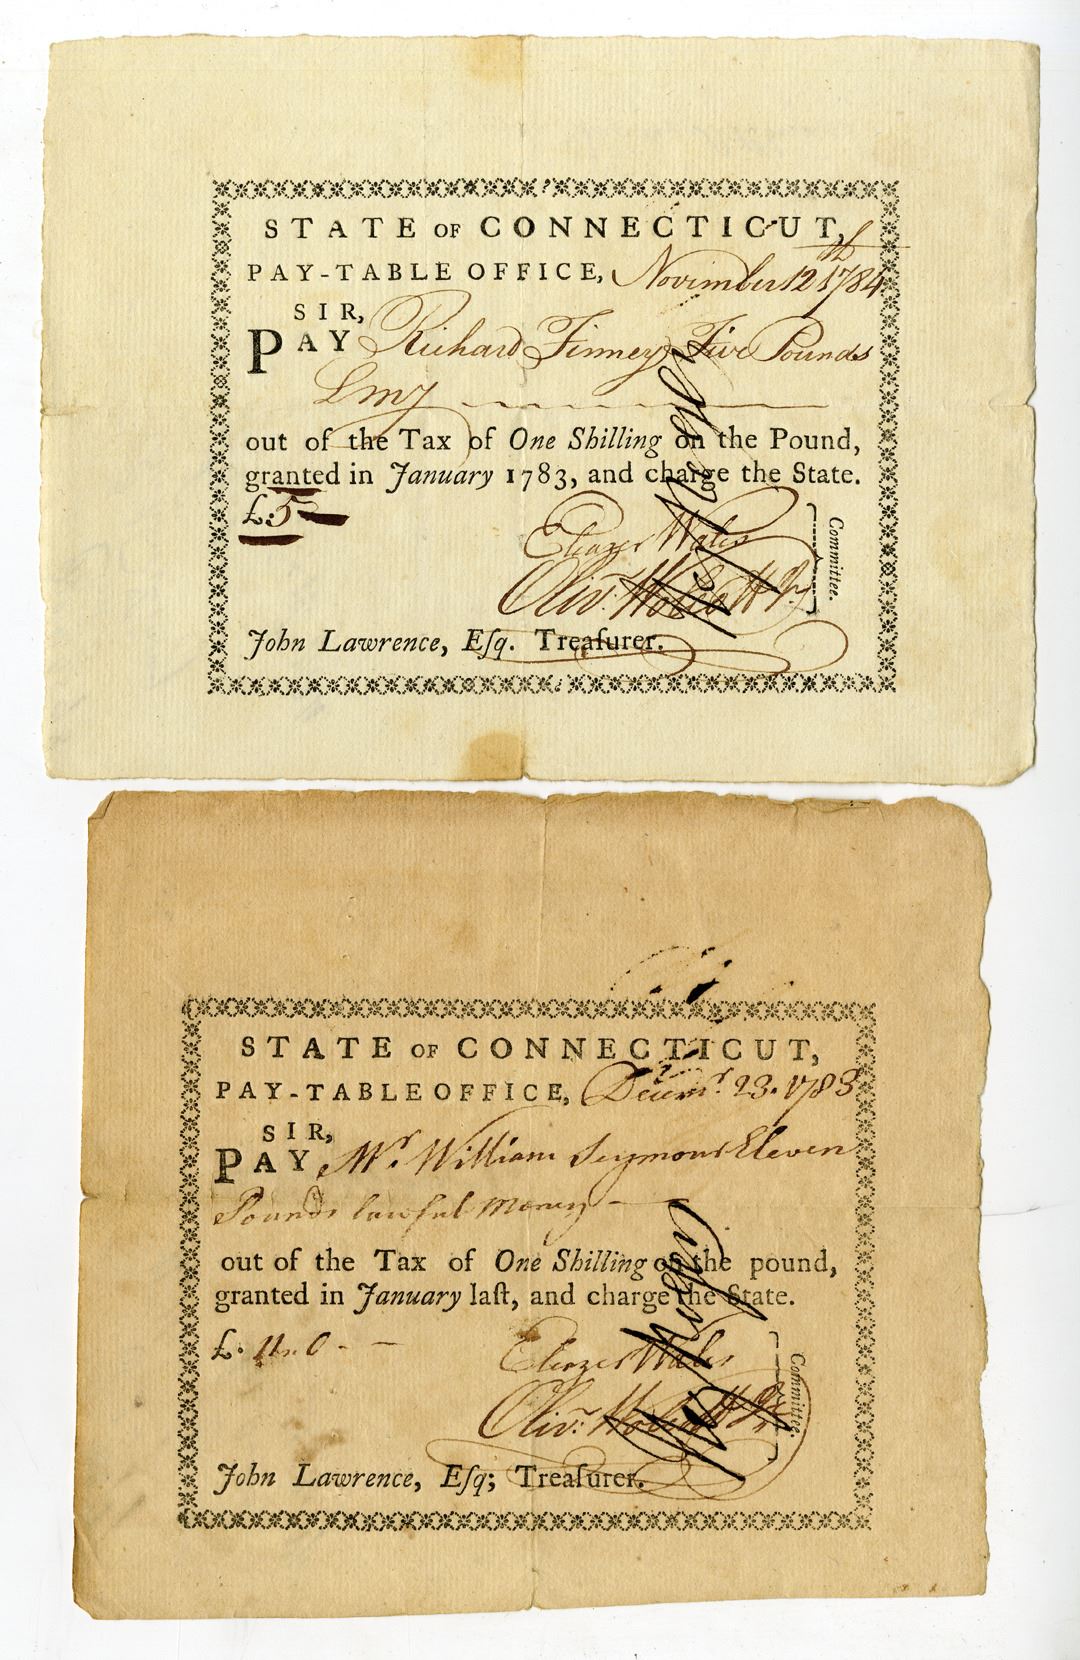 STATE OF CONNECTICUT,
PAY-TABLE OFFICE, November 12th 1784
SIR,
PAY Richard Finney Five Pounds
Lmy
out of the Tax of One Shilling on the Pound,
granted in January 1783, and charge the State.
£.5
Eleazer Wales
Olivr. Wolcott Jr
Committee.
John Lawrence, Eſq. Treaſurer.
STATE OF CONNECTICUT,
PAY-TABLE OFFICE, Decemr. 23. 1783
SIR,
PAY Mr. William Seymour Eleven
Pounds lawful Money
out of the Tax of One Shilling on the pound,
granted in January laſt, and charge the State.
£. 11.. 0 - -
Eleazer Wales
Olivr. Wolcott Jr
Committee.
John Lawrence, Eſq; Treaſurer.